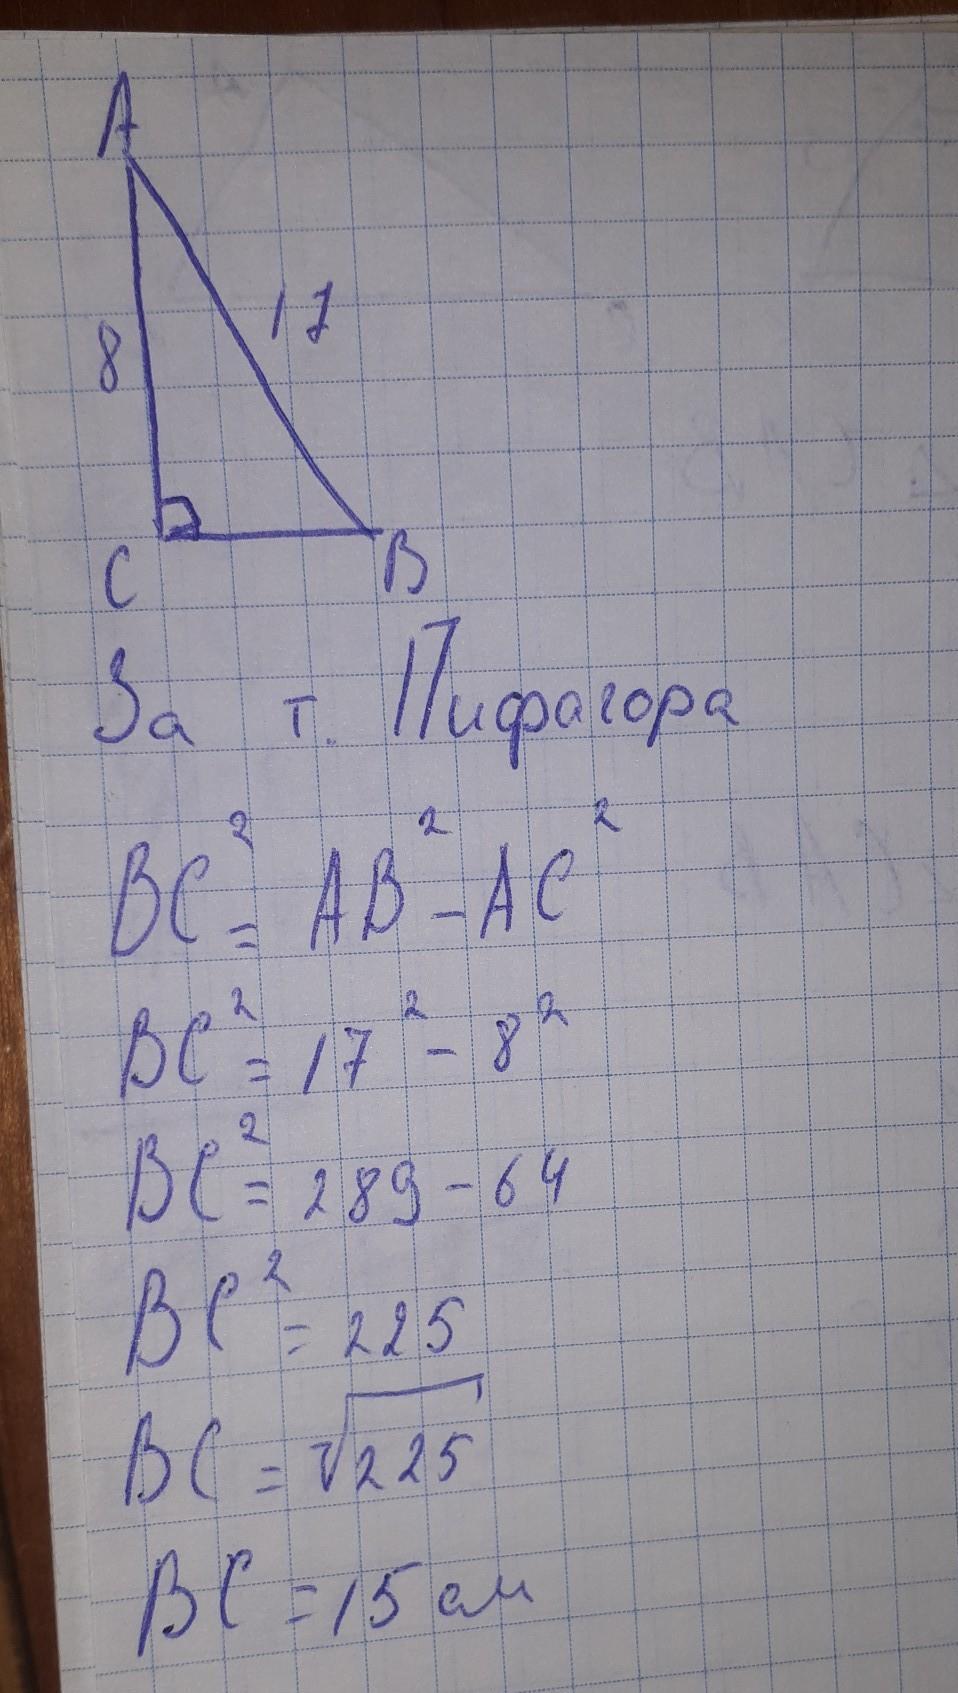 A
8
17
C
B
За т. Пифагора
BC² = AB² - AC²
BC² = 17² - 8²
BC² = 289 - 64
BC² = 225
BC = √225
BC = 15 см